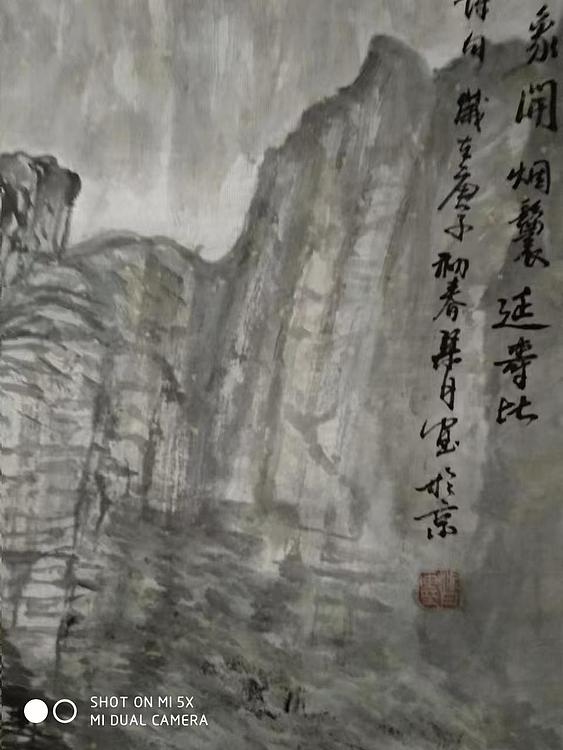 象開烟鬟延寿比
詩句歲在庚子初春琹月寫於京
SHOT ON MI 5X
MI DUAL CAMERA